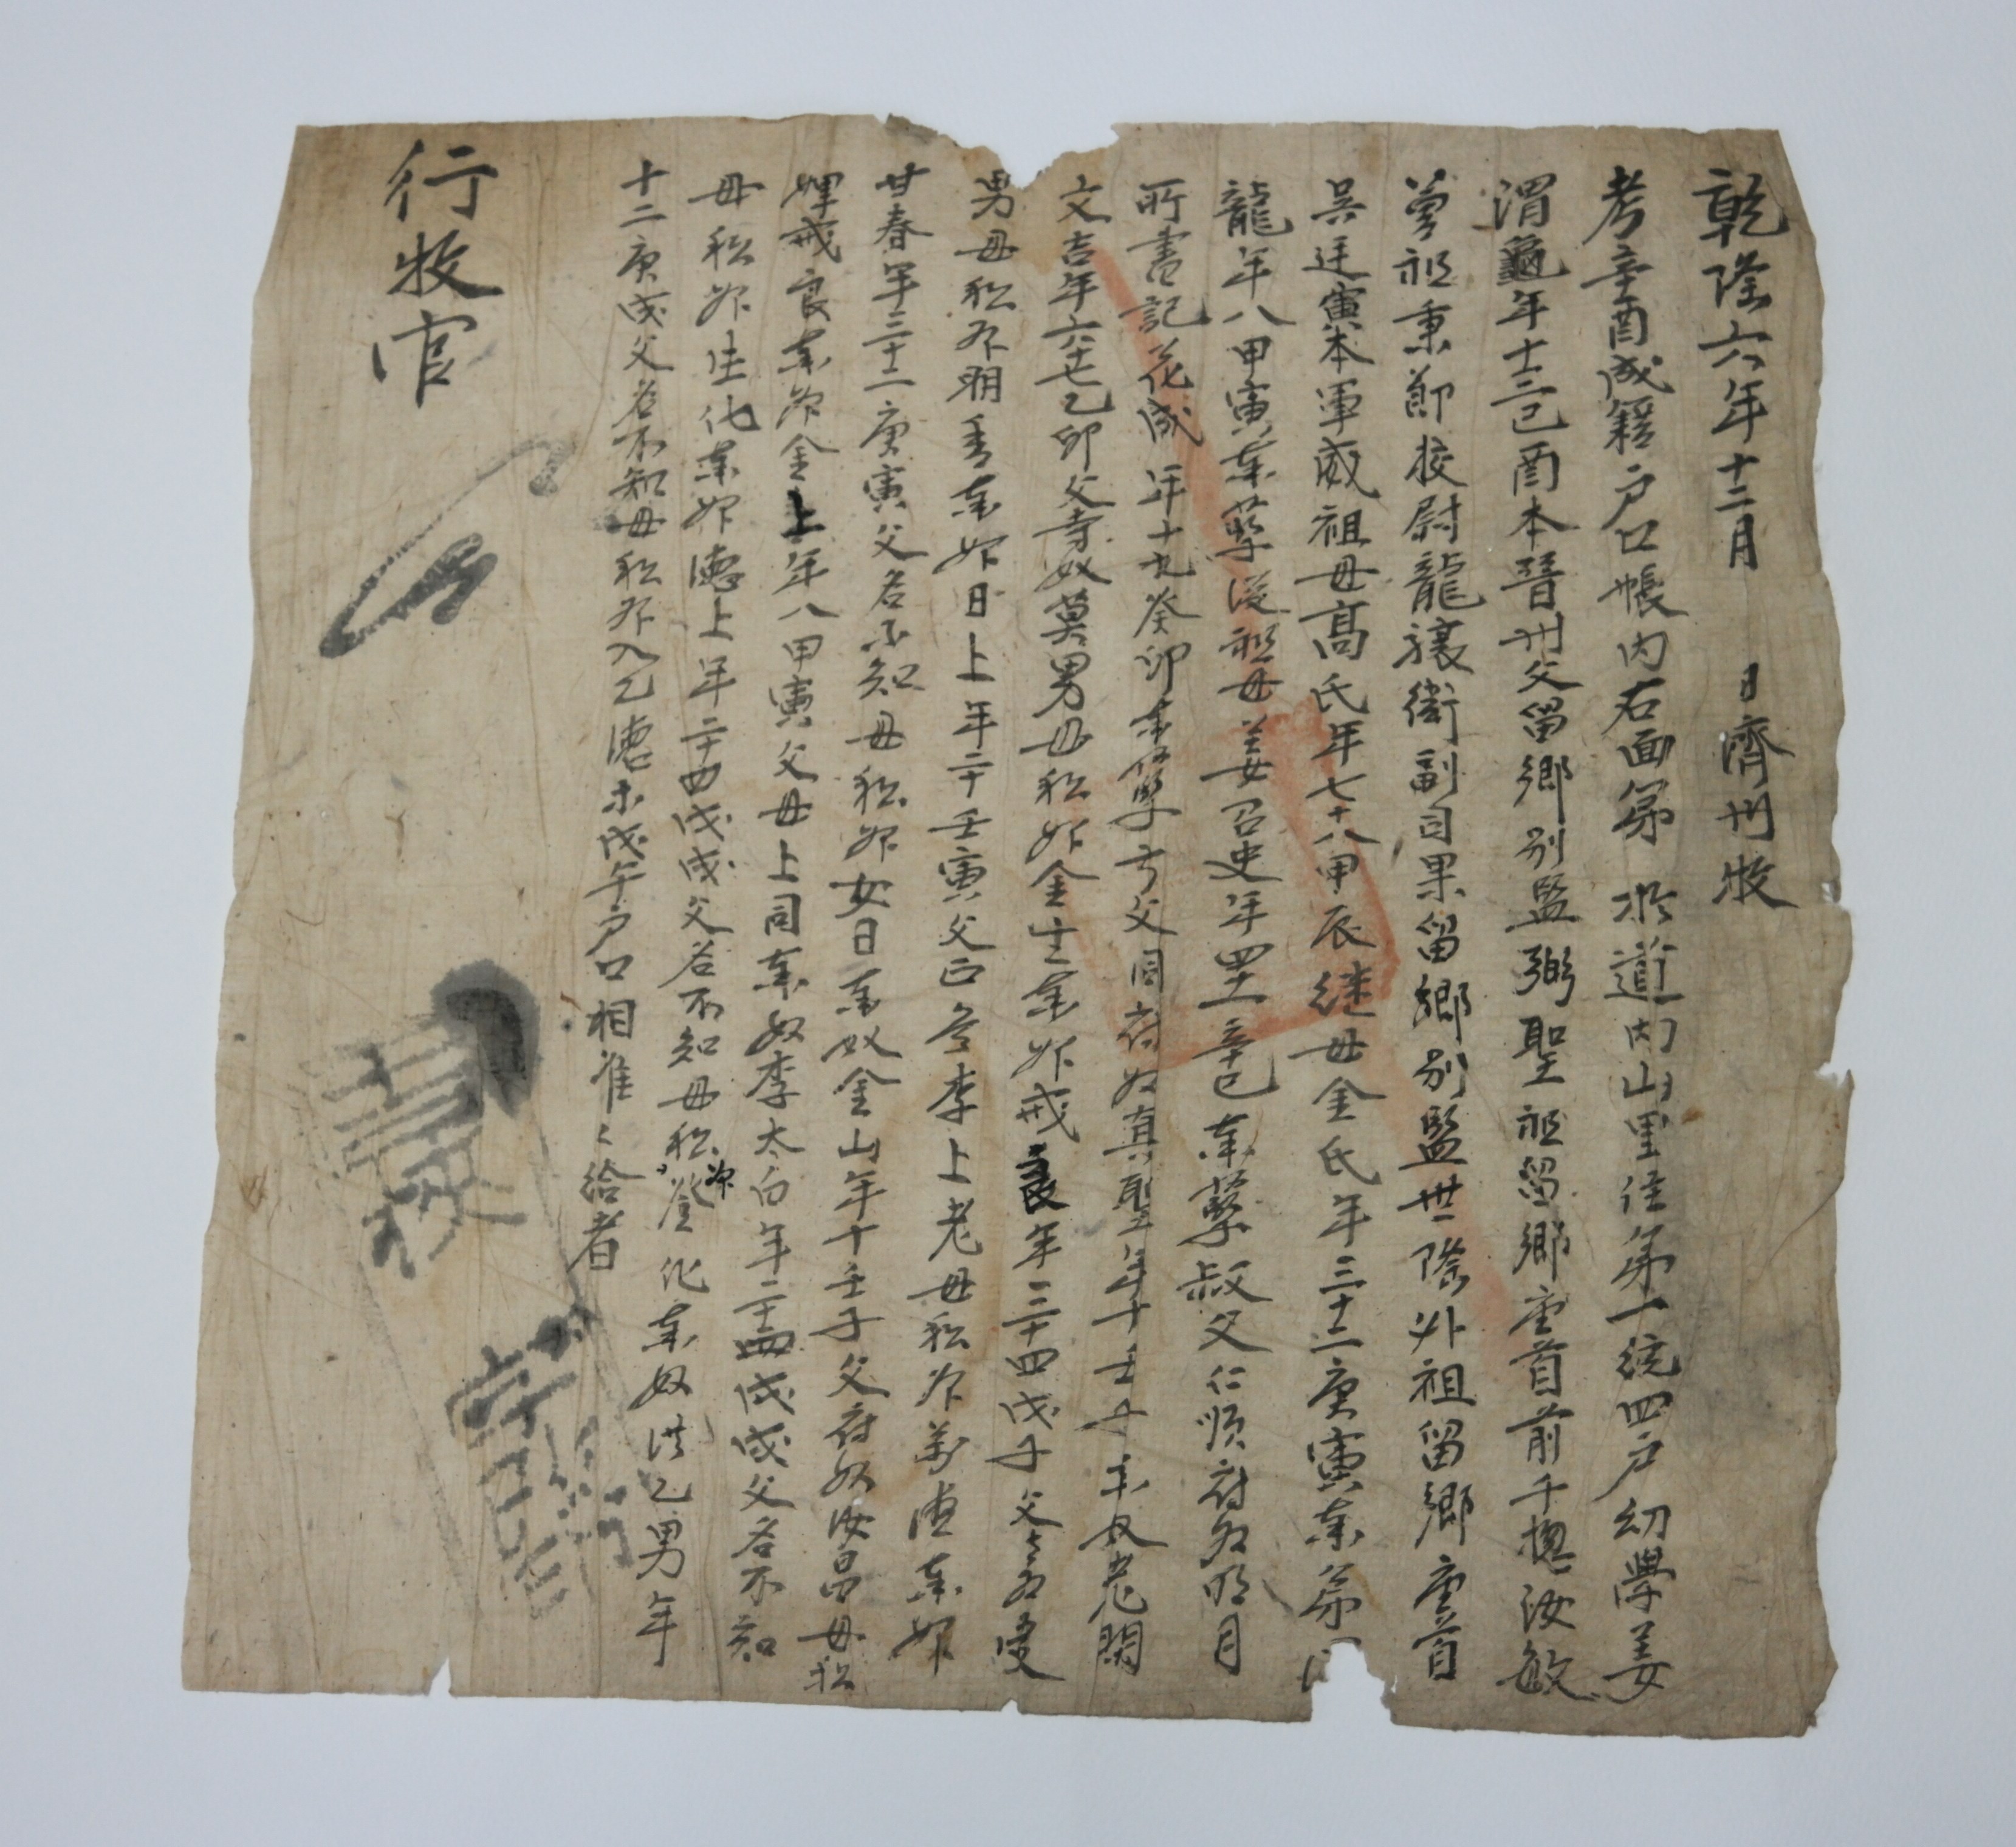 乾隆六年十二月 日濟州牧
考辛酉成籍戶口帳內右面第 於道內山里住第一統四戶幼學姜
渭龜年十三己酉本晉州父留鄉別監弼聖祖留鄉座首前千摠汝敏
曾祖秉節校尉龍驤衛副司果留鄉別監世隆外祖留鄉座首
吳廷寅本軍威祖母高氏年七十八甲辰継母金氏年三十二庚寅率弟
龍年八甲寅率孽從祖母姜召史年四十一辛巳率孽叔父仁順府名明月
所書記花成年十九癸卯率孽子父同府奴真聖年十壬子 奴老閑
文吉年六十七乙卯父寺奴莫男母私婢金 率婢戒良年三十四戊子父
男母私婢明香率婢日上年二十壬寅父正 李上老母私婢萬德率婢
廿春年三十二庚寅父名不知母私婢女日率奴金山年十壬子父府奴汝昌母私
婢戒良率婢金上年八甲寅父母上同率奴李太白年二十四戊戌父名不知
母私婢生化率婢德上年二十四戊戌父名不知母私婢 化率奴洪乙男年
十二庚戌父名不知母私婢 乙德末戊午戶口相准〻給者
行牧官